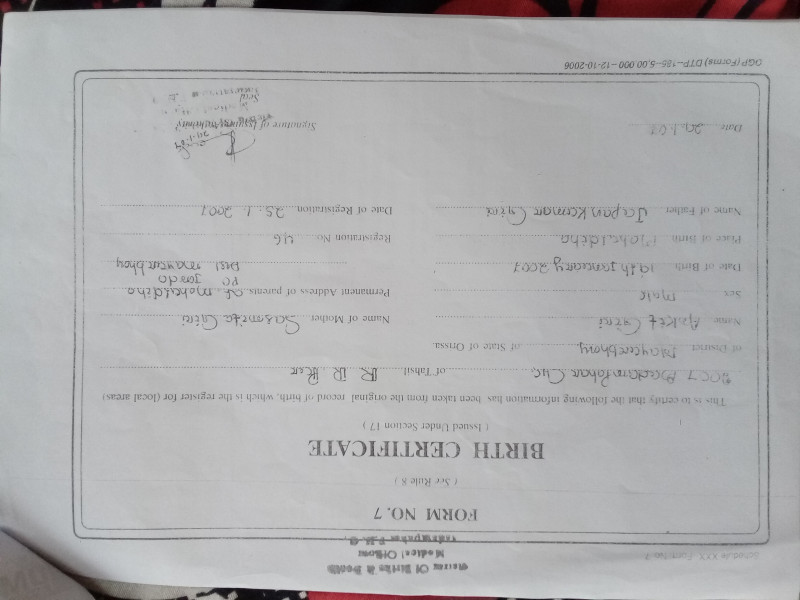 Schedule XXX Form No. 7
Of Births & Death
Medical Officer
FORM NO. 7
( See Rule 8 )
BIRTH CERTIFICATE
( Issued Under Section 17 )
This is to certify that the following information has been taken from the original record of birth, which is the register for (local areas)
2007 of Tahsil
of District Mayurbhanj of State of Orissa.
Name Ankit Giri
Name of Mother Sasmita Giri
Sex male
Permanent Address of parents At. mohuldiha
PO
Dist mayurbhanj
Date of Birth 19th january 2007
Place of Birth Mohuldiha
Registration No. 46
Name of Father Tapan kumar Giri
Date of Registration 25. 1. 2007
Date 29.1.07
Signature of Issuing Authority
OGP (Forms) DTP–186–5,00,000–12-10-2006